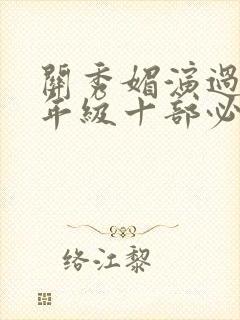 關秀媚演過
年級十部必
络江黎